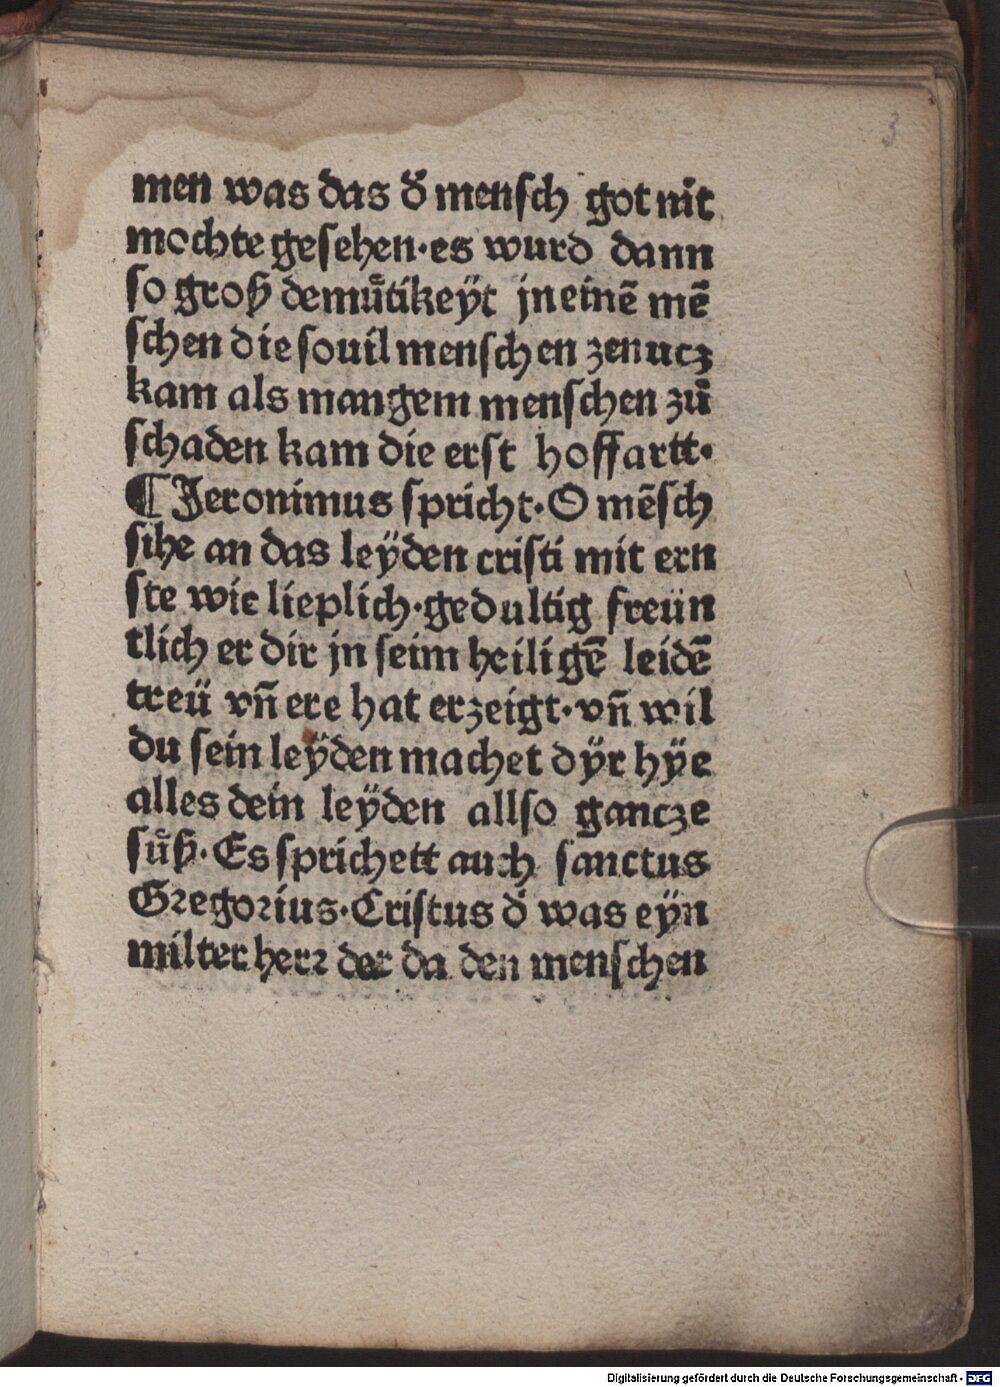 3
men was das d̕ mensch got nit
mochte gesehen·es wurd dann
so groß demuͤtikeÿt jn einē mē
schen die souil menschen ze nucz
kam als mangem menschen zuͦ
schaden kam die erst hoffartt·
¶ Jeronimus spricht·O mēsch
sihe an das leÿden cristi mit ern
ste wie lieplich·gedultig freün
tlich er dir jn seim heiligē leidē
treü vn̄ ere hat erzeigt·vn̄ wil
du sein leÿden machet dÿr hÿe
alles dein leÿden allso gancze
suͤß·Es sprichett auch sanctus
Gregorius·Cristus d̕ was eÿn
milter herr der da den menschen
Digitalisierung gefördert durch die Deutsche Forschungsgemeinschaft - DFG